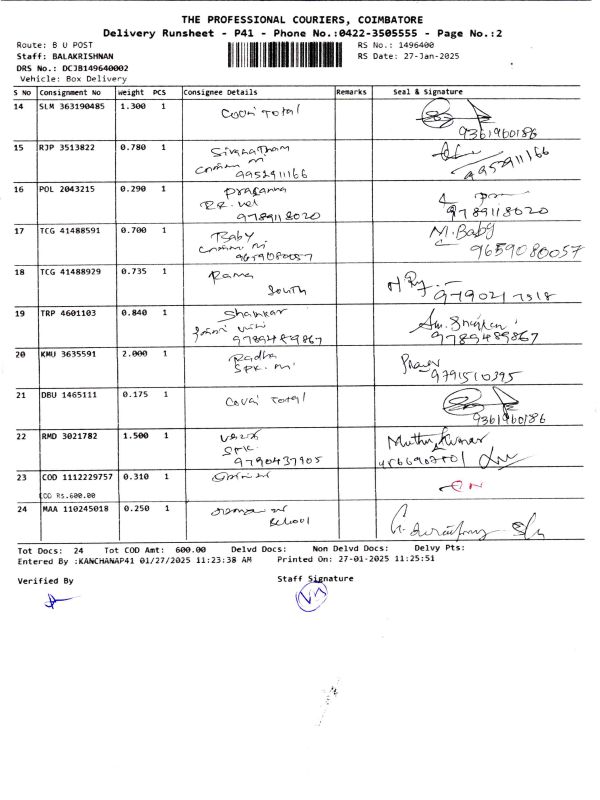 THE PROFESSIONAL COURIERS, COIMBATORE
Delivery Runsheet - P41 - Phone No.:0422-3505555 - Page No.:2
Route: B U POST
RS No.: 1496400
Staff: BALAKRISHNAN
RS Date: 27-Jan-2025
DRS No.: DCJB149640002
Vehicle: Box Delivery
S No Consignment No Weight PCS Consignee Details Remarks Seal & Signature
14 SLM 363190485 1.300 1 Covai Total
9361960186
15 RJP 3513822 0.780 1
9952911166 9952911166
16 POL 2043215 0.290 1 prasanna
9789118020 9789118020
17 TCG 41488591 0.700 1 Baby M. Baby
9659080057 9659080057
18 TCG 41488929 0.735 1 Rama
South
19 TRP 4601103 0.840 1 Shankar
9789489867 9789489867
20 KMU 3635591 2.000 1 Radha
9791510395
21 DBU 1465111 0.175 1 Covai Total
9361960186
22 RMD 3021782 1.500 1 Muthu Kumar
9790437905
23 COD 1112229757 0.310 1
COD Rs.600.00
24 MAA 110245018 0.250 1
School
Tot Docs: 24 Tot COD Amt: 600.00 Delvd Docs: Non Delvd Docs: Delvy Pts:
Entered By :KANCHANAP41 01/27/2025 11:23:38 AM Printed On: 27-01-2025 11:25:51
Verified By Staff Signature